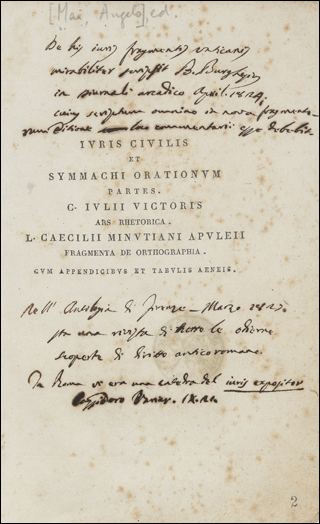 [Mai, Angelo] ed.
De his iuris fragmentis vaticanis
mirabiliter scripsit B. Burghesi
in giornali arcadico April. 1824,
cuius scriptura omnino in nova fragmento-
rum editione commentarii esse debebit
IVRIS CIVILIS
ET
SYMMACHI ORATIONVM
PARTES.
C. IVLII VICTORIS
ARS RHETORICA.
L. CAECILII MINVTIANI APVLEII
FRAGMENTA DE ORTHOGRAPHIA.
CVM APPENDICIBVS ET TABVLIS AENEIS.
Nell' Antologia di Firenze - Marzo 182
sta una rivista di le odierne
scoperte di diritto antico romano.
In Roma vi era una catedra del iuris expositor
Cassiodoro Variar. IX. 21.
2